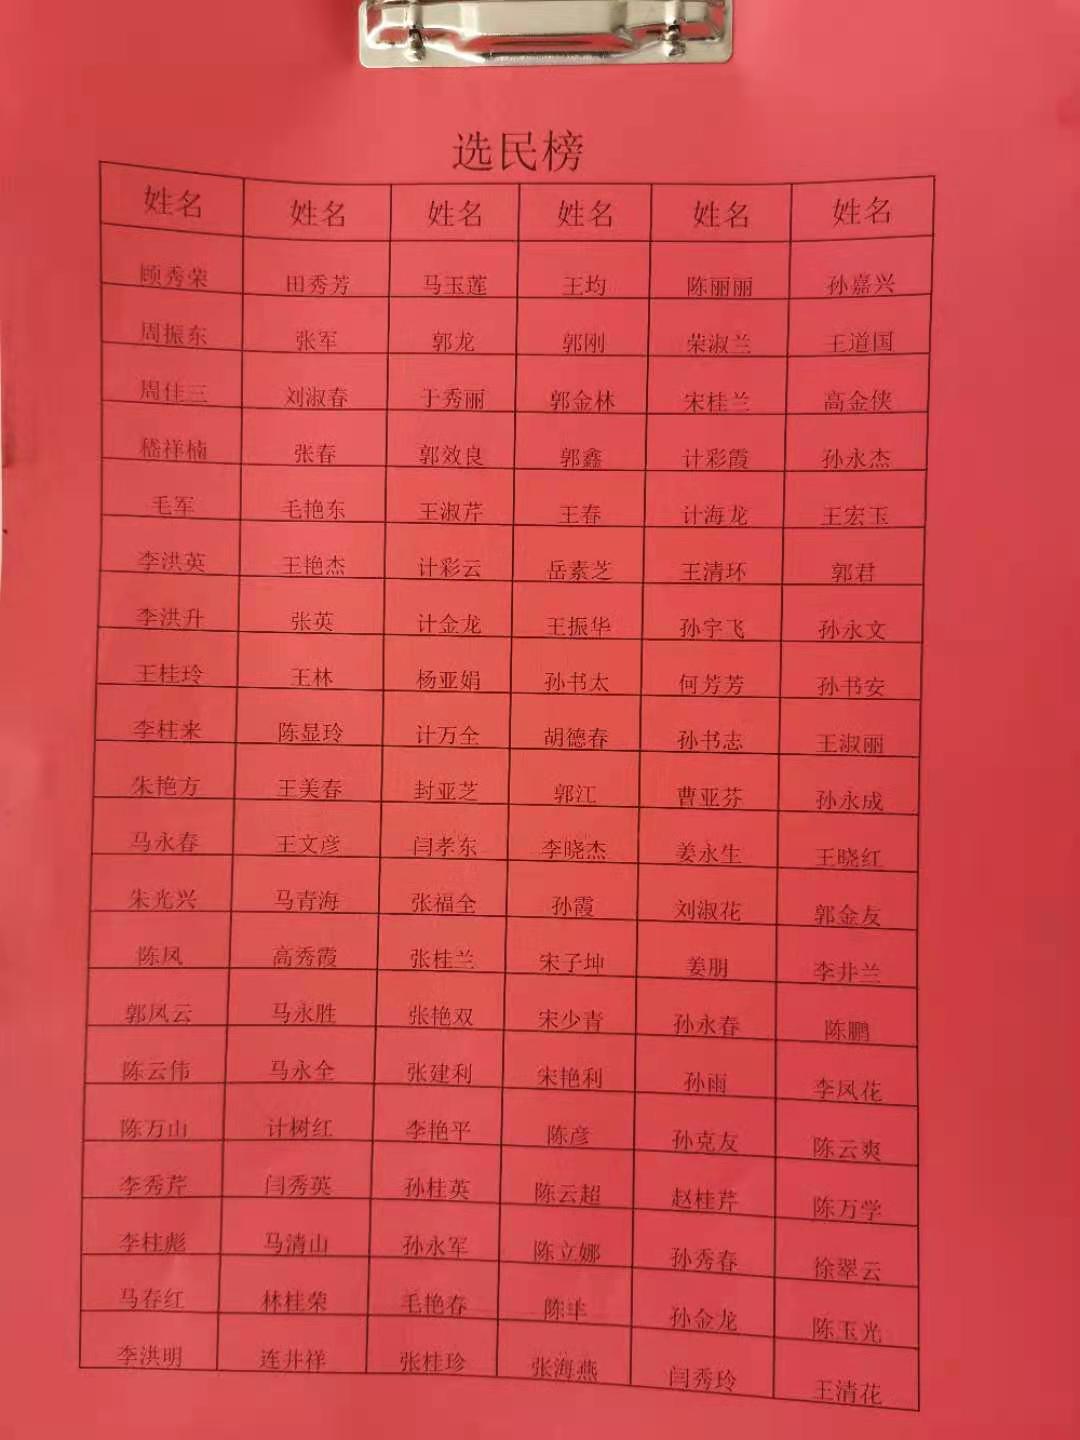 选民榜
姓名 姓名 姓名 姓名 姓名 姓名
顾秀荣 田秀芳 马玉莲 王均 陈丽丽 孙嘉兴
周振东 张军 郭龙 郭刚 荣淑兰 王道国
周佳三 刘淑春 于秀丽 郭金林 宋桂兰 高金侠
嵇祥楠 张春 郭效良 郭鑫 计彩霞 孙永杰
毛军 毛艳东 王淑芹 王春 计海龙 王宏玉
李洪英 王艳杰 计彩云 岳素芝 王清环 郭君
李洪升 张英 计金龙 王振华 孙宇飞 孙永文
王桂玲 王林 杨亚娟 孙书太 何芳芳 孙书安
李桂来 陈显玲 计万全 胡德春 孙书志 王淑丽
朱艳方 王美春 封亚芝 郭江 曹亚芬 孙永成
马永春 王文彦 闫孝东 李晓杰 姜永生 王晓红
朱光兴 马青海 张福全 孙霞 刘淑花 郭金友
陈凤 高秀霞 张桂兰 宋子坤 姜朋 李井兰
郭凤云 马永胜 张艳双 宋少青 孙永春 陈鹏
陈云伟 马永全 张建利 宋艳利 孙雨 李凤花
陈万山 计树红 李艳平 陈彦 孙克友 陈云爽
李秀芹 闫秀英 孙桂英 陈云超 赵桂芹 陈万学
李柱彪 马清山 孙永军 陈立娜 孙秀春 徐翠云
马春红 林桂荣 毛艳春 陈 孙金龙 陈玉光
李洪明 连井祥 张桂珍 张海燕 闫秀玲 王清花